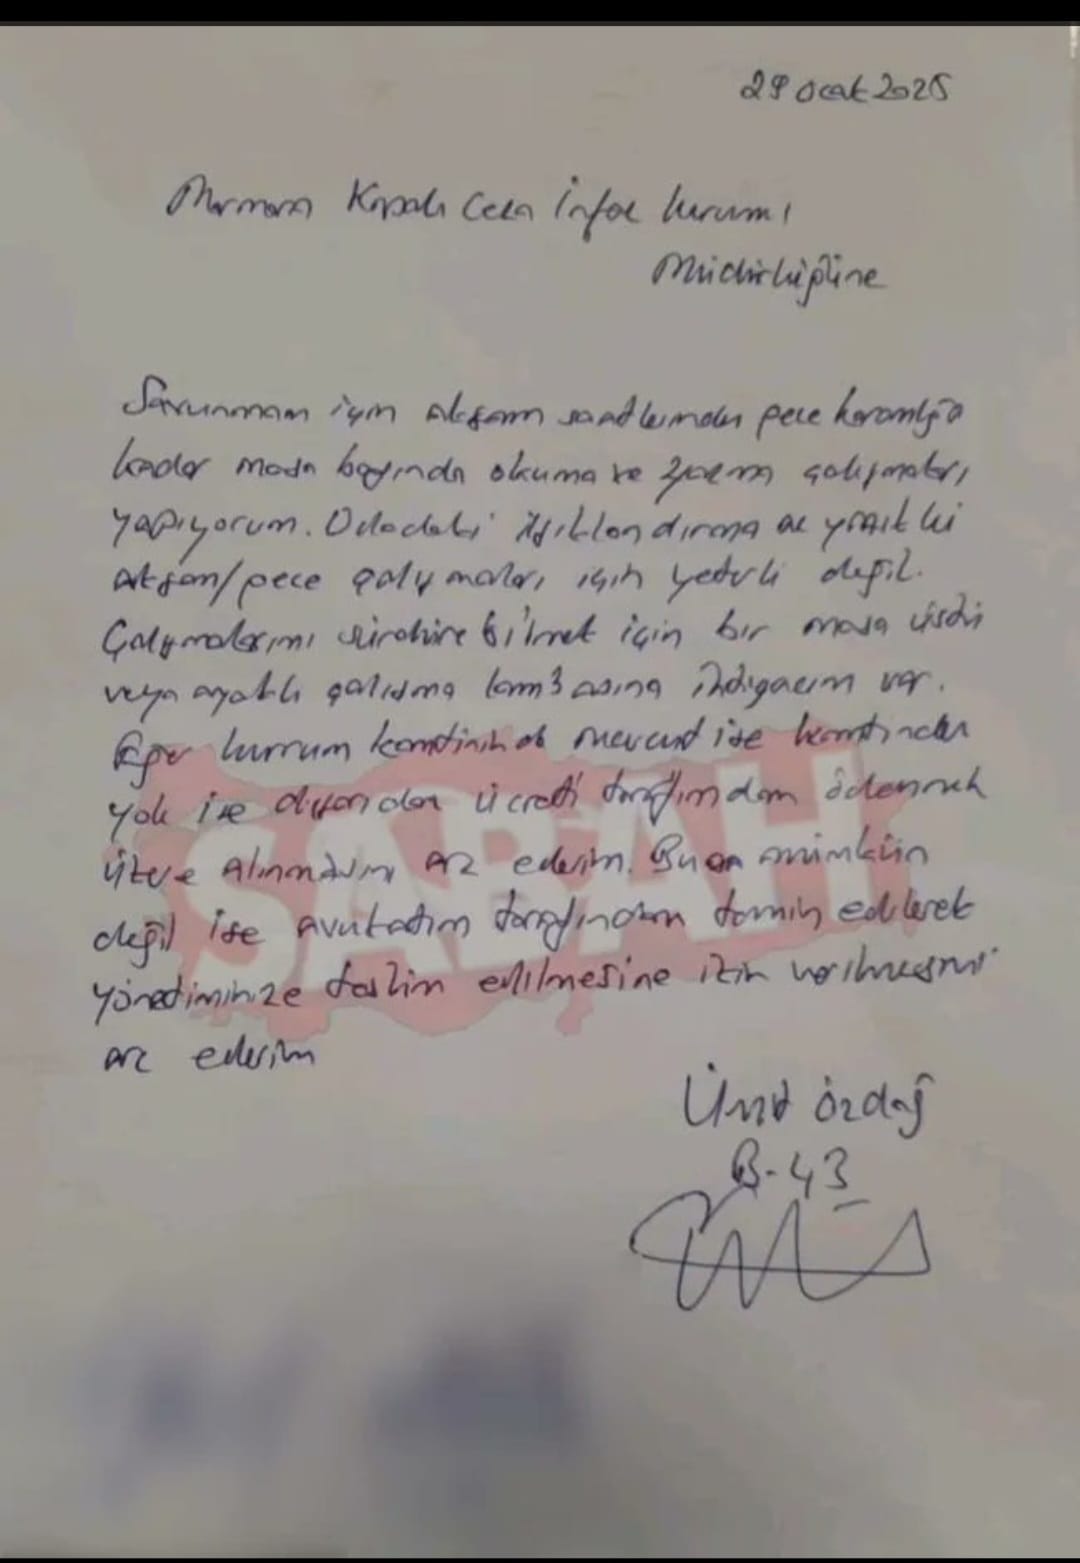 29 Ocak 2025
Marmara Kapalı Ceza İnfaz kurumı
Müdürlüğüne
Savunmam için akşam saatlerinden gece karanlığa
kadar masa başında okuma ve yazma çalışmaları
yapıyorum. Odadaki ışıklandırma ne yazık ki
Akşam/gece çalışmaları için yeterli değil.
Çalışmalarımı sürdürebilmek için bir masa üstü
veya ayaklı çalışma lambasına ihtiyacım var.
Eğer kurum kantininde mevcut ise kantinden
yok ise dışarıdan ücreti tarafımdan ödenmek
üzere alınmasını arz ederim. Bu mümkün
değil ise avukatım tarafından temin edilerek
yönetiminize teslim edilmesine izin verilmesini
arz ederim
Ümit Özdağ
B-43
SABAH